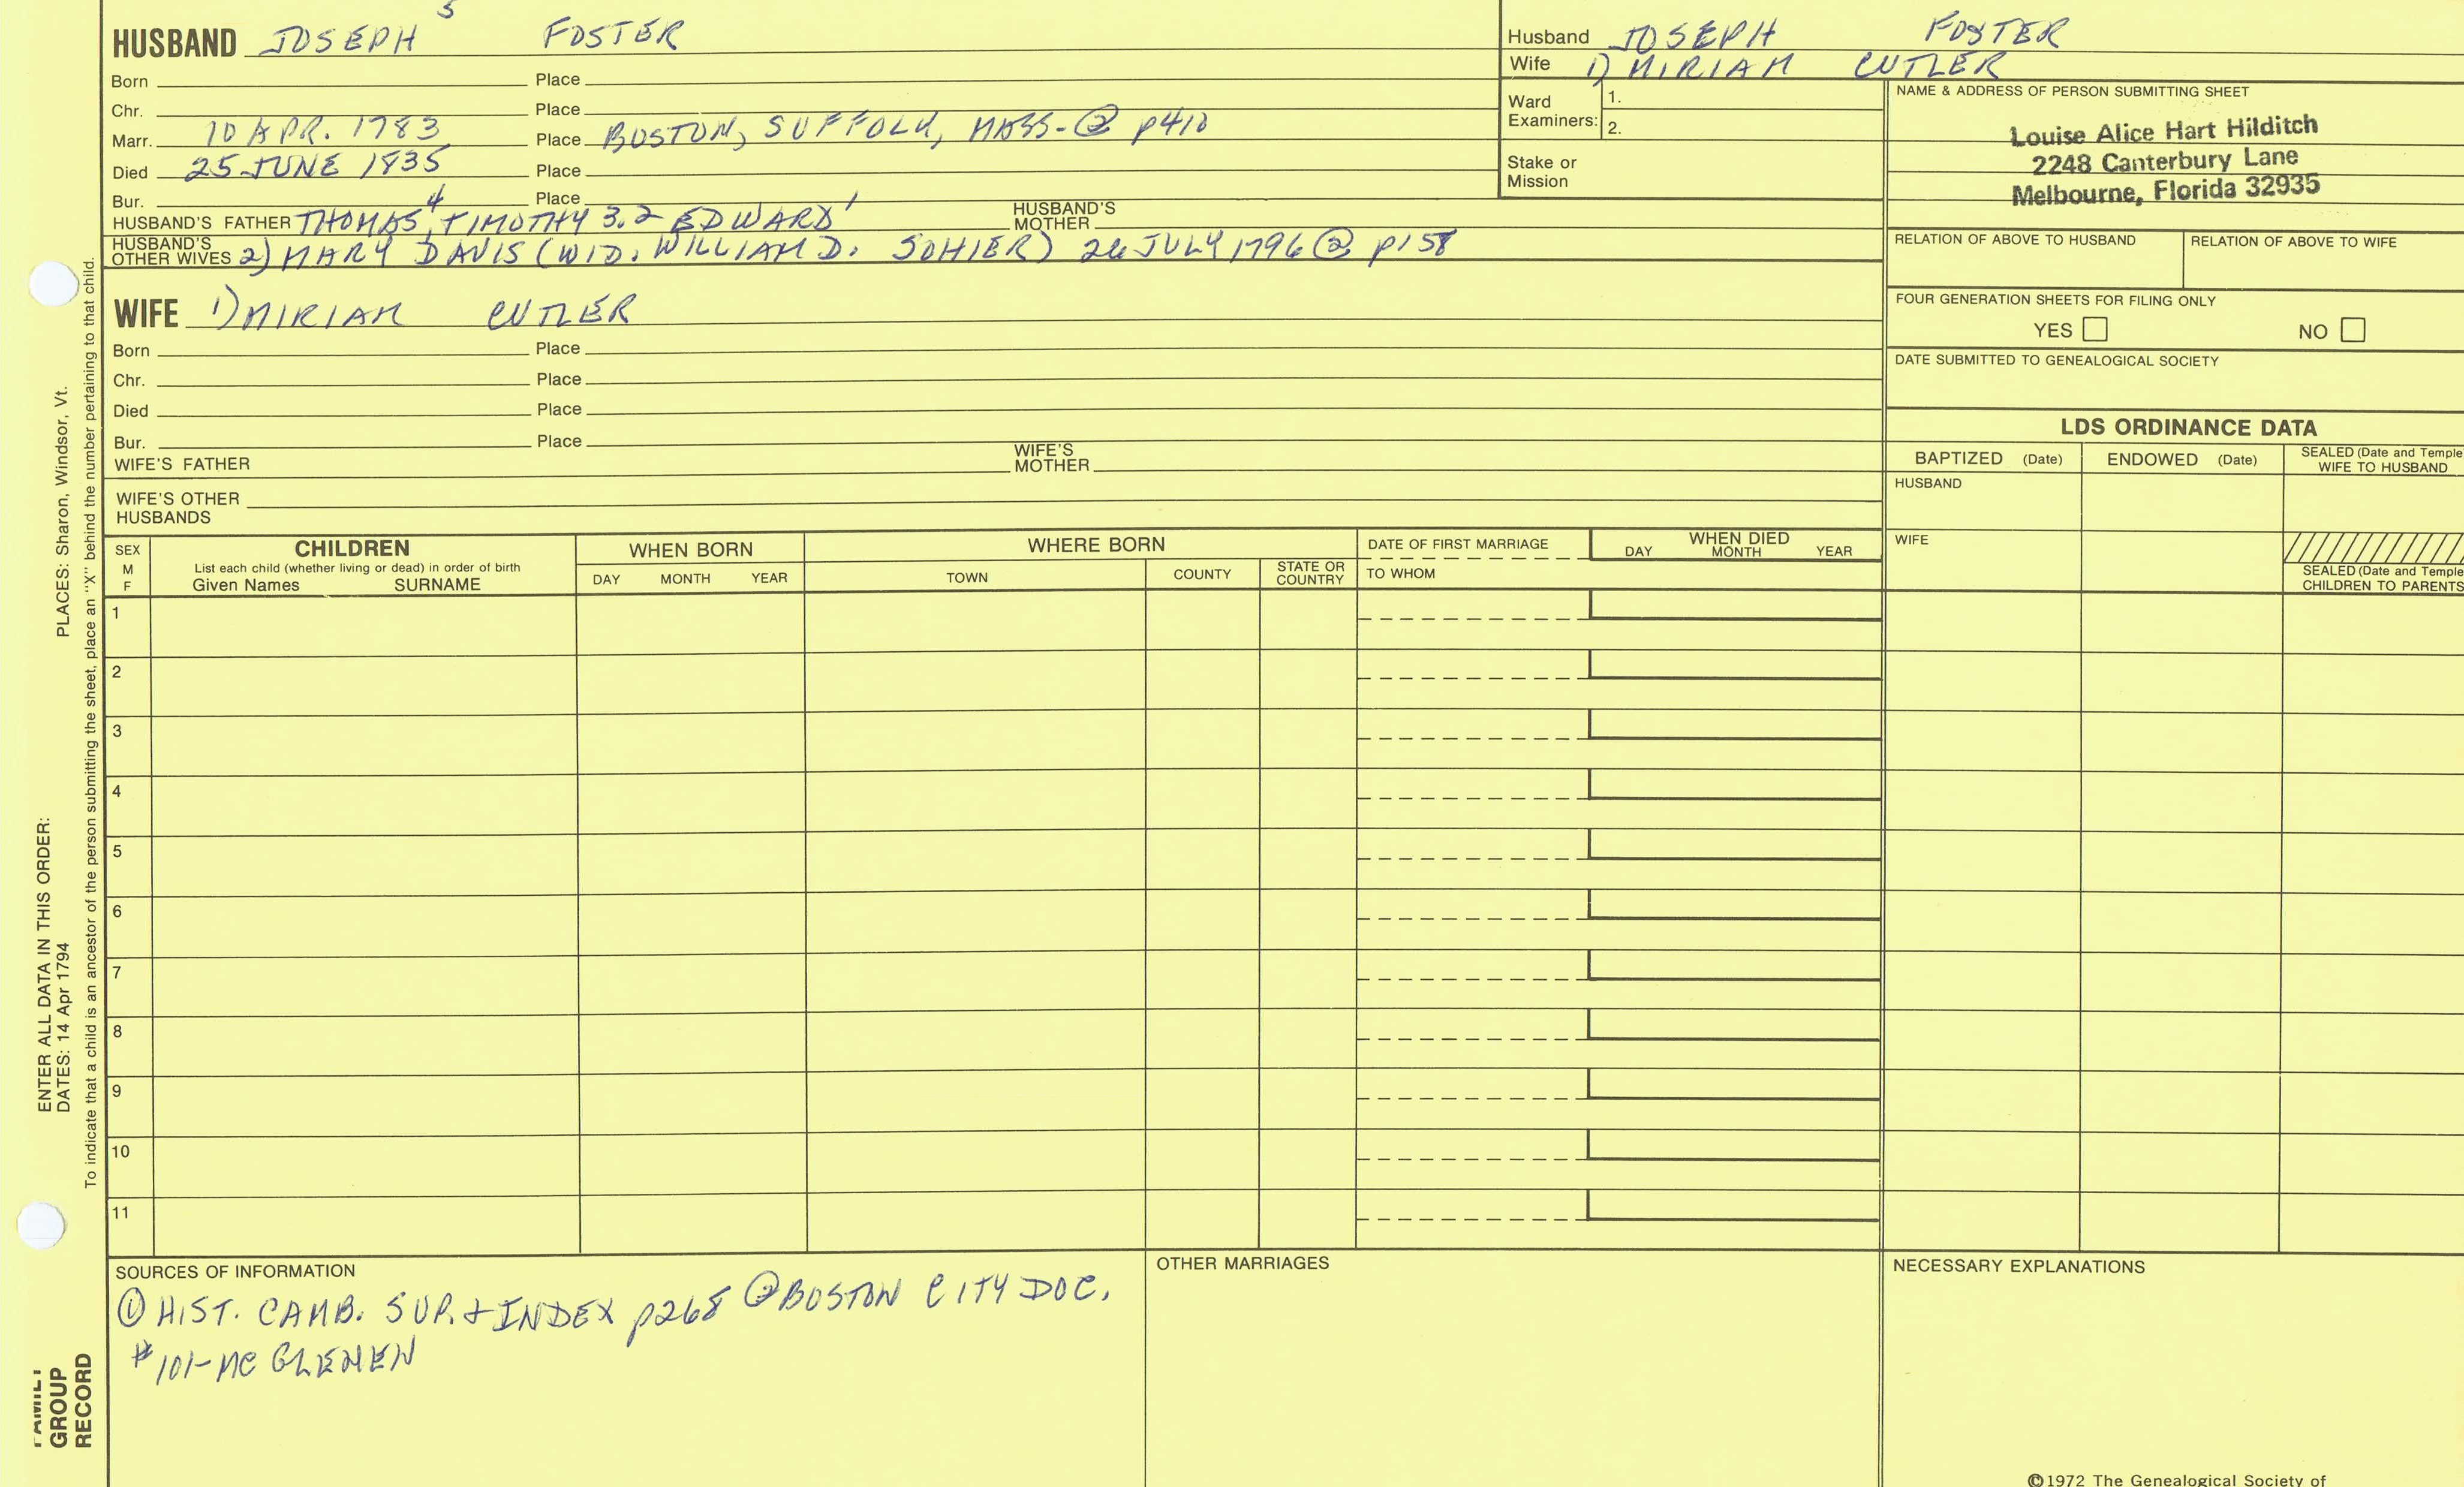 HUSBAND JOSEPH 5 FOSTER
Born Place
Chr. Place
Marr. 10 APR. 1783 Place BOSTON, SUFFOLK, MASS-② p410
Died 25 JUNE 1835 Place
Bur. Place
HUSBAND'S FATHER THOMAS 4, TIMOTHY 3.2 EDWARD 1 HUSBAND'S MOTHER
HUSBAND'S OTHER WIVES 2) MARY DAVIS (WID. WILLIAM D. SOHIER) 26 JULY 1796 ② p158
WIFE 1) MIRIAM CUTLER
Born Place
Chr. Place
Died Place
Bur. Place
WIFE'S FATHER WIFE'S MOTHER
WIFE'S OTHER HUSBANDS
Husband JOSEPH FOSTER
Wife 1) MIRIAM CUTLER
Ward Examiners: 1.
2.
Stake or Mission
NAME & ADDRESS OF PERSON SUBMITTING SHEET
Louise Alice Hart Hilditch
2248 Canterbury Lane
Melbourne, Florida 32935
RELATION OF ABOVE TO HUSBAND RELATION OF ABOVE TO WIFE
FOUR GENERATION SHEETS FOR FILING ONLY
YES NO
DATE SUBMITTED TO GENEALOGICAL SOCIETY
LDS ORDINANCE DATA
BAPTIZED (Date) ENDOWED (Date) SEALED (Date and Temple
WIFE TO HUSBAND
HUSBAND
WIFE
SEALED (Date and Temple
CHILDREN TO PARENTS
SEX
M
F
CHILDREN
List each child (whether living or dead) in order of birth
Given Names SURNAME
WHEN BORN
DAY MONTH YEAR
WHERE BORN
TOWN COUNTY STATE OR COUNTRY
DATE OF FIRST MARRIAGE
TO WHOM
WHEN DIED
DAY MONTH YEAR
1
2
3
4
5
6
7
8
9
10
11
SOURCES OF INFORMATION
① HIST. CAMB. SUP. + INDEX p268 ② BOSTON CITY DOC.
#101-MC GLENEN
OTHER MARRIAGES
NECESSARY EXPLANATIONS
©1972 The Genealogical Society of
PLACES: Sharon, Windsor, Vt.
To indicate that a child is an ancestor of the person submitting the sheet, place an "X" behind the number pertaining to that child.
ENTER ALL DATA IN THIS ORDER:
DATES: 14 Apr 1794
FAMILY
GROUP
RECORD